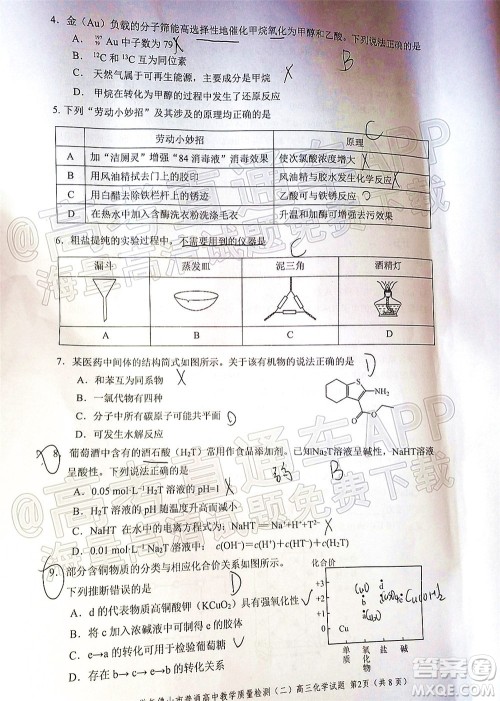 4. 金（Au）负载的分子筛能高选择性地催化甲烷氧化为甲醇和乙酸。下列说法正确的是
A. ¹⁹⁷₇₉Au 中子数为 79 X
B
B. ¹²C 和 ¹³C 互为同位素
C. 天然气属于可再生能源，其主要成分是甲烷 X
D. 甲烷在转化为甲醇的过程中发生了还原反应
5. 下列“劳动小妙招”及其涉及的原理均正确的是
C
劳动小妙招 原理
A 加“洁厕灵”增强“84 消毒液”消毒效果 使次氯酸浓度增大
B 用风油精拭去门上的胶 风油精与胶水发生化学反应
C 用白醋去除铁栏杆上的锈迹 乙酸可与铁锈反应
D 在热水中加入含酶洗衣粉洗涤毛衣 升温和加酶可增强去污效果
6. 粗盐提纯的实验过程中，不需要用到的仪器是 C
漏斗 蒸发皿 泥三角 酒精灯
A B C D
7. 某医药中间体的结构简式如图所示。关于该有机物的说法正确的是 D
A. 和苯互为同系物 X
B. 一氯代物有四种
C. 分子中所有碳原子可能共平面
D. 可发生水解反应
S
NH₂
O
O
8. 葡萄酒中含有的酒石酸（H₂T）常用作食品添加剂。已知Na₂T溶液呈碱性，NaHT溶液
呈酸性。下列说法正确的是 B
A. 0.05 mol·L⁻¹ H₂T 溶液的 pH=1 X
C. NaHT 在水中的电离方程式为：NaHT=Na⁺+H⁺+T²⁻
9. 部分含铜物质的分类与相应化合价关系如图所示。
下列推断错误的是 D
A. d 的代表物质高铜酸钾（KCuO₂）具有强氧化性
B. b 和 c 加入浓碱液中可得到 d
C. e→a 的转化可用于检验葡萄糖
D. e→c 的转化可通过化合反应实现
化合价
+3
+2
+1
0
Cu
单质 氧化物 盐 碱
普通高中教学质量检测（二）高三化学试题 第2页（共 8 页）
高考直通车APP
海量高清试题免费下载
答案圈
MXQE.COM